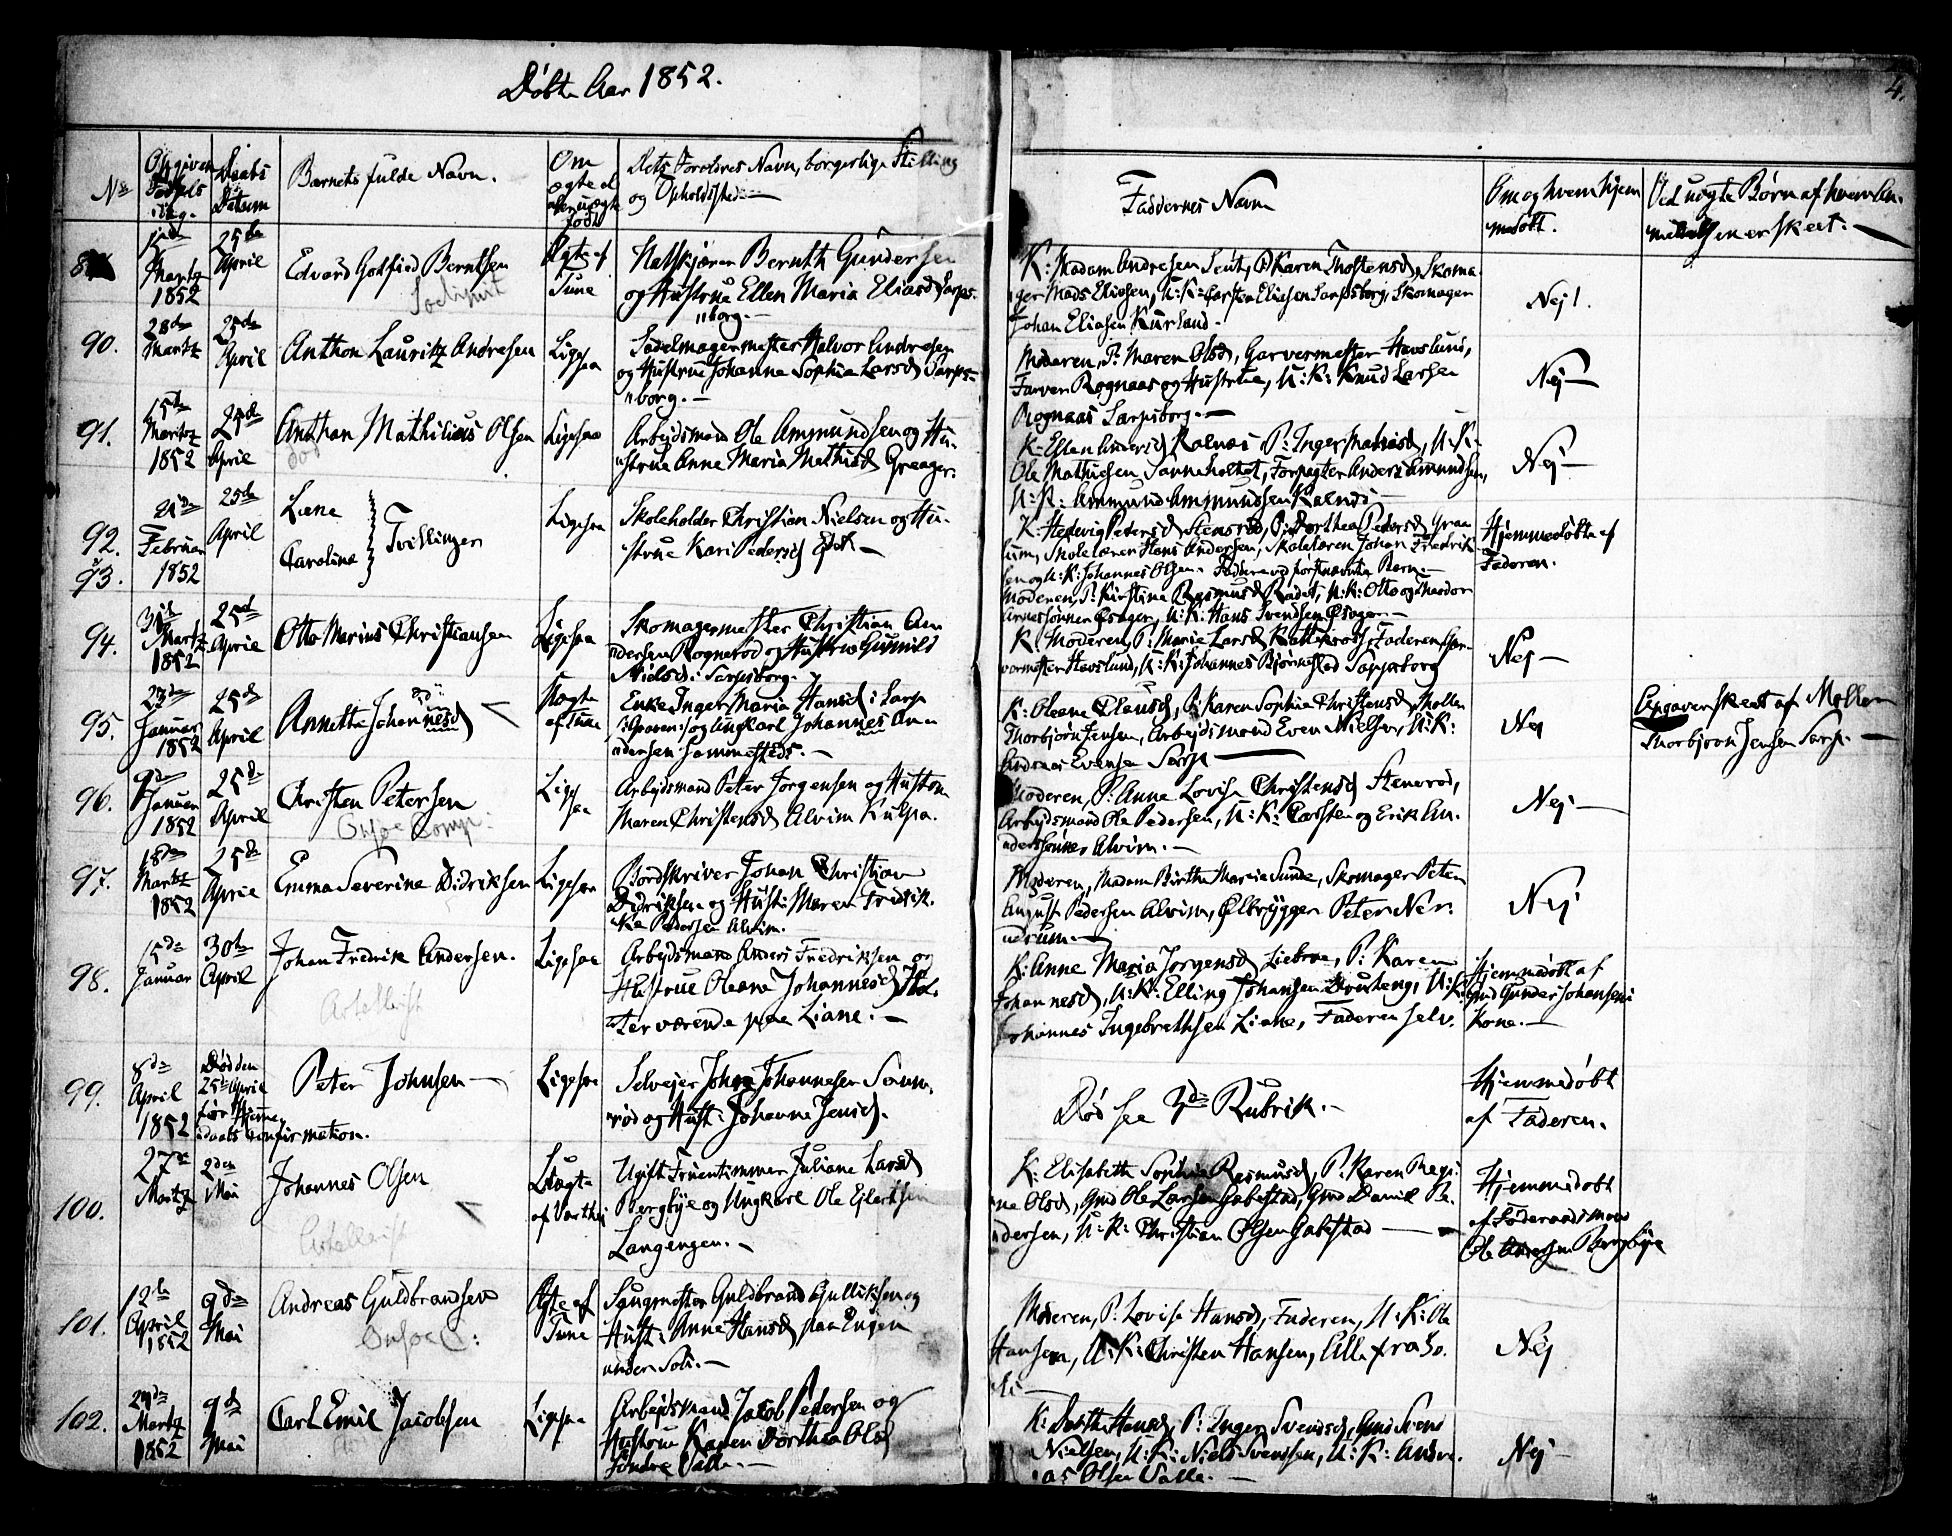 Døbte Aar 1852.
4.
No
Opgiven Fødsels dag.
Daabs Datum
Barnets fulde Navn.
Om ægte el. uægte født
Dets Forældres Navn, borgerlige Stilling
og Opholdssted.—
Faddernes Navn
Om og hvem hjem
medøbt.
Ved uægte Børn af hvem An-
meldelsen er skeet.—
Martz
1852
25de
April
Edvard Gotfried Berntsen
Ægte af
Tune
Bernth Gundersen
og Hustrue Ellen Maria Eliasd Sarps-
borg.—
K: Madam Andresen P Karen Skoma-
ger Mads Eliasen, U:K: Carsten Eliasen Sarpsborg, Skomager
Johan Eliasen Kurland.
Nej!
90.
28de
Martz
25de
April
Anthon Lauritz Andresen
Ligesaa
Sadelmagermester Halvor Andresen
og Hustrue Johanne Sophia Larsd Sarps-
borg.—
Moderen, P: Maren Olsd, Garvermester Havslund,
Farver Rognaas og Hustrue, U:K: Knud Larsen
Rognaas Sarpsborg.—
Nej—
91.
15de
Martz
1852
25de
April
Anthon Mathilius Olsen
død
Ligesaa
Arbejdsmand Ole Ammundsen og Hu-
strue Anne Maria Mathisd Greager.
K: Ellen Andersd Kalnæs P: Inger Mathisd, U:K:
Ole Mathiesen Forpagter Anders Amundsen,
U:K: Ammund Ammundsen Kalnæs—
Nej—
92.
93.
21de
Februar
1852
25de
April
Liane
Caroline
Tvillinger
Ligesaa
Skoleholder Christian Nielsen og Hu-
strue Kari Pedersd
K: Hedevig Pedersd Stensrød, P: Dorthea Pedersd Graa-
lum, Skolelærer Hans Andersen, Skolelærer Johan Fredrik-
sen og U:K: Johannes Olsen. Faddere ved førstnævnte Barn.—
Moderen, P: Kirstine Rasmusd Rødet, U:K: Otto og Haldor
U:K: Hans Svendsen
Hjemmedøbte af
Faderen.
94.
31de
Martz
1852
25de
April
Otto Marius Christiansen
Ligesaa
Skomagermester Christian An-
dersen Rognerød og Hustrue Gunild
Nielsd i Sarpsborg.
K: Moderen, P: Marie Larsd Faderen, Gar-
vermester Havslund, U:K: Johannes Bjørnstad Sarpsborg
Nej—
95.
23de
Januar
1852
25de
April
Annette Johannesd
Uægte
af Tune
Enke Inger Maria Hansd i Sarp
og Ungkarl Johannes An-
dersen Sammesteds.—
K: Oleane Clausd, P: Karen Sophia Christensd, Møller
Thorbjørn Jensen, Arbejdsmand Even Nielsen, U:K:
Andreas Evensen Sarp—
Nej
Opgaven skeet af Møller
Thorbjørn Jensen Sarp.—
96.
9de
Januar
1852
25de
April
Christen Petersen
Onsøe Comp:
Ligesaa
Arbejdsmand Peter Jørgensen og Hustrue
Maren Christensd Alvim Kulpa.
Moderen, P: Anne Lovise Christensd Stensrød,
Arbejdsmand Ole Pedersen, U:K: Carsten og Erik An-
derssønner Alvim.—
Nej—
97.
18de
Martz
1852
25de
April
Emma Severine Didriksen
Ligesaa
Bordskriver Johan Christian
Didriksen og Hust: Maren Fredrik-
ke Pedersen Alvim.—
Moderen, Madam Birthe Maria Lunde, Skomager Peter
August Pedersen Alvim, Ølbrygger Peter Ner-
Nej
98.
15de
Januar
30te
April
Johan Fredrik Andersen.
Artellerist
Ligesaa
Arbejdsmand Anders Fredriksen og
Hustrue Oleane Johannesd
værende paa Liane.—
K: Anne Maria Jørgensd P: Karen
Johannesd, U:K: Elling Johansen U:K:
Johannes Ingebrethsen Liane, Faderen selv.
Hjemmedøbt af
Gmd Gunder Johansens
Kone.—
99.
8de
April
1852
Død den
25de April
før Hjemme-
daabs Confirmation.
Peter Johnsen—
Ligesaa
Selvejer John Johannesen
og Hust: Johanne Jensd.
Død see 3de Rubrik.—
Hjemmedøbt
af Faderen.
100.
27de
Martz
2den
Mai
Johannes Olsen
Artellerist
Uægte
af Varteig
Ugift Fruentimmer Juliane Larsd
Bergbye og Ungkarl Ole Ejlertsen
Langengen.—
K: Elisabeth Sophia Rasmusd, P: Karen Regi-
ne Olsd, Gmd Ole Larsen Gabestad, Gmd Daniel Pe-
dersen, U:K: Christian Olsen Gabestad—
Hjemmedøbt
af Føderaadsmand
Ole Bergbye
101.
12te
April
1852
9de
Mai
Andreas Guldbransen
Onsøe C:
Ægte af
Tune
Saugmester Guldbrand Gulliksen og
Hust: Anne Hansd paa Engen
under Soli.—
Moderen, P: Lovise Hansd, Faderen, U:K: Ole
Hansen, U:K: Christen Hansen, Alle fra So-
li—
Nej
102.
29de
Martz
1852
9de
Mai
Carl Emil Jacobsen
Ligesaa
Arbejdsmand Jacob Pedersen og
Hustrue Karen Dorthea Olsd
Søndre Valle.—
K: Dorthe Hansd, P: Inger Svendsd, Gmd Svend
Nielsen, U:K: Niels Svendsen, U:K: Andre-
as Olsen Valle.—
Nej—